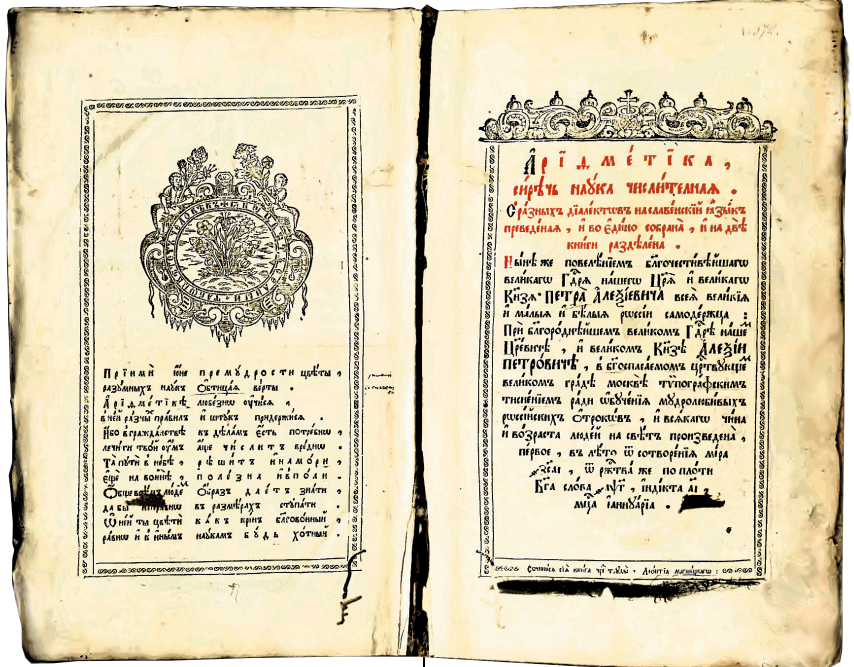 № 372.
Прїимѝ ю҆́не премꙋ́дрости цвѣты̀ ,
разꙋ́мныхъ наꙋ́къ Ѻ҆бтица́ѧ верты .
А҆рїѳме́тїкѣ любе́знѡ ᲂу҆чи́сѧ ,
в не́й ра́зныхъ пра́вилъ и҆ штꙋ́къ придержи́сѧ .
И҆́бо в гражда́нствѣ къ дѣла́мъ є҆́сть потре́бнѡ ,
лечи́ти тво́й ᲂу҆́мъ а҆́ще чи́слитъ вре́днѡ
Та̀ пꙋтѝ в не́бѣ , рѣши́тъ и҆ на мо́ри ,
є҆щѐ на во́инѣ , поле́зна и҆ в по́ли .
Ѻ҆́бще всѣ́мъ лю́демъ Ѻ҆́бразъ дае́тъ зна́ти ,
да бы̀ и҆спра́внѡ въ размѣ́рахъ стꙋпа́ти .
ты̀ цвѣтѝ ка́къ кри́нъ бл҃гово́нный ,
ра́внѡ и҆ наꙋ́камъ бꙋ́дь хо́тный .
А҆рїѳме́тїка ,
си́рѣчь наꙋ́ка числи́телнаѧ .
С ра́зныхъ дїале́ктѡвъ на славе́нскїй ѧ҆зы́къ
преведе́наѧ , и҆ во є҆ди́но собрана̀ , и҆ на двѣ̀
кни́ги раздѣле́на .
Ны́нѣ же повелѣ́нїемъ бл҃гочести́вѣйшагѡ
вели́кагѡ Гдⷭ҇рѧ на́шегѡ Цр҃ѧ̀ и҆ вели́кагѡ
Кн҃зѧ ПЕТРА̀ А҆ЛЕѮІ́ЕВИЧА всеѧ̀ вели́кїѧ
и҆ ма́лыѧ и҆ бѣ́лыѧ рѡссі́и самоде́ржца :
Прѝ бл҃горо́днѣйшемъ вели́комъ Гдⷭ҇рѣ̀ на́шемъ
Цр҃е́вичѣ , и҆ вели́комъ Кн҃зѣ А҆ЛЕѮІ́И
ПЕТРО́ВИЧѢ , в бг҃оспаса́емомъ црⷭ҇твꙋ́ющемъ
вели́комъ гра́дѣ москвѣ̀ тѷпогра́фскимъ
тисне́нїемъ ра́ди ѡ҆бꙋче́нїѧ мꙋдролюби́выхъ
рѡссі́йскихъ Ѻ҆́трокѡвъ , и҆ всѧ́кагѡ чи́на
и҆ во́зраста люде́й на свѣ́тъ произведена̀ ,
пе́рвое , въ лѣ́то ѿ сотворе́нїѧ мі́ра
҂зсаі , ѿ ржⷭ҇тва̀ же по пло́ти
Бг҃а сло́ва ҂аѱг , і҆нді́кта аі ,
мцⷭ҇а і҆аннꙋа́рїа .
Сочини́сѧ сїѧ̀ кни́га чрⷥ трꙋды̀ Леѻ́нтїа магни́цкагѡ :